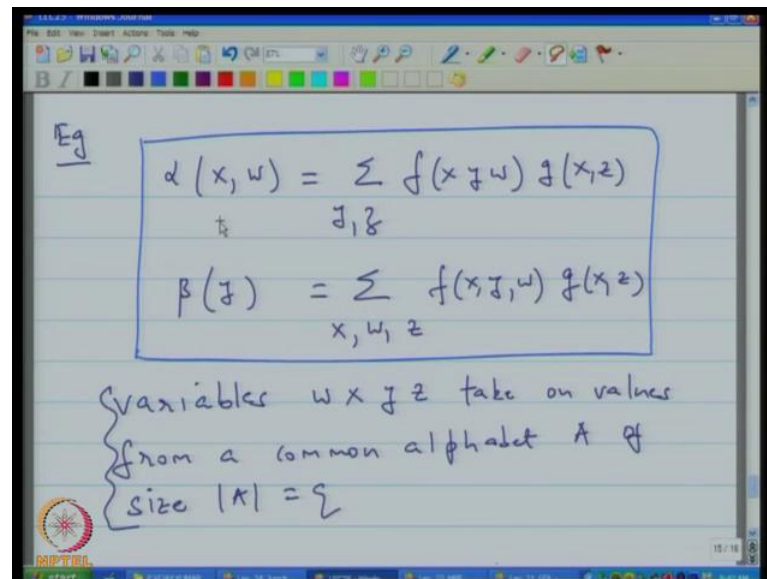 LEC25 - Windows Journal
File Edit View Insert Actions Tools Help
B I
Eg
α (x, w) = Σ f(x y w) g(x,z)
y, z
β(y) = Σ f(x, y, w) g(x, z)
x, w, z
variables w x y z take on values
from a common alphabet A of
size |A| = q
NPTEL
15 / 16
start